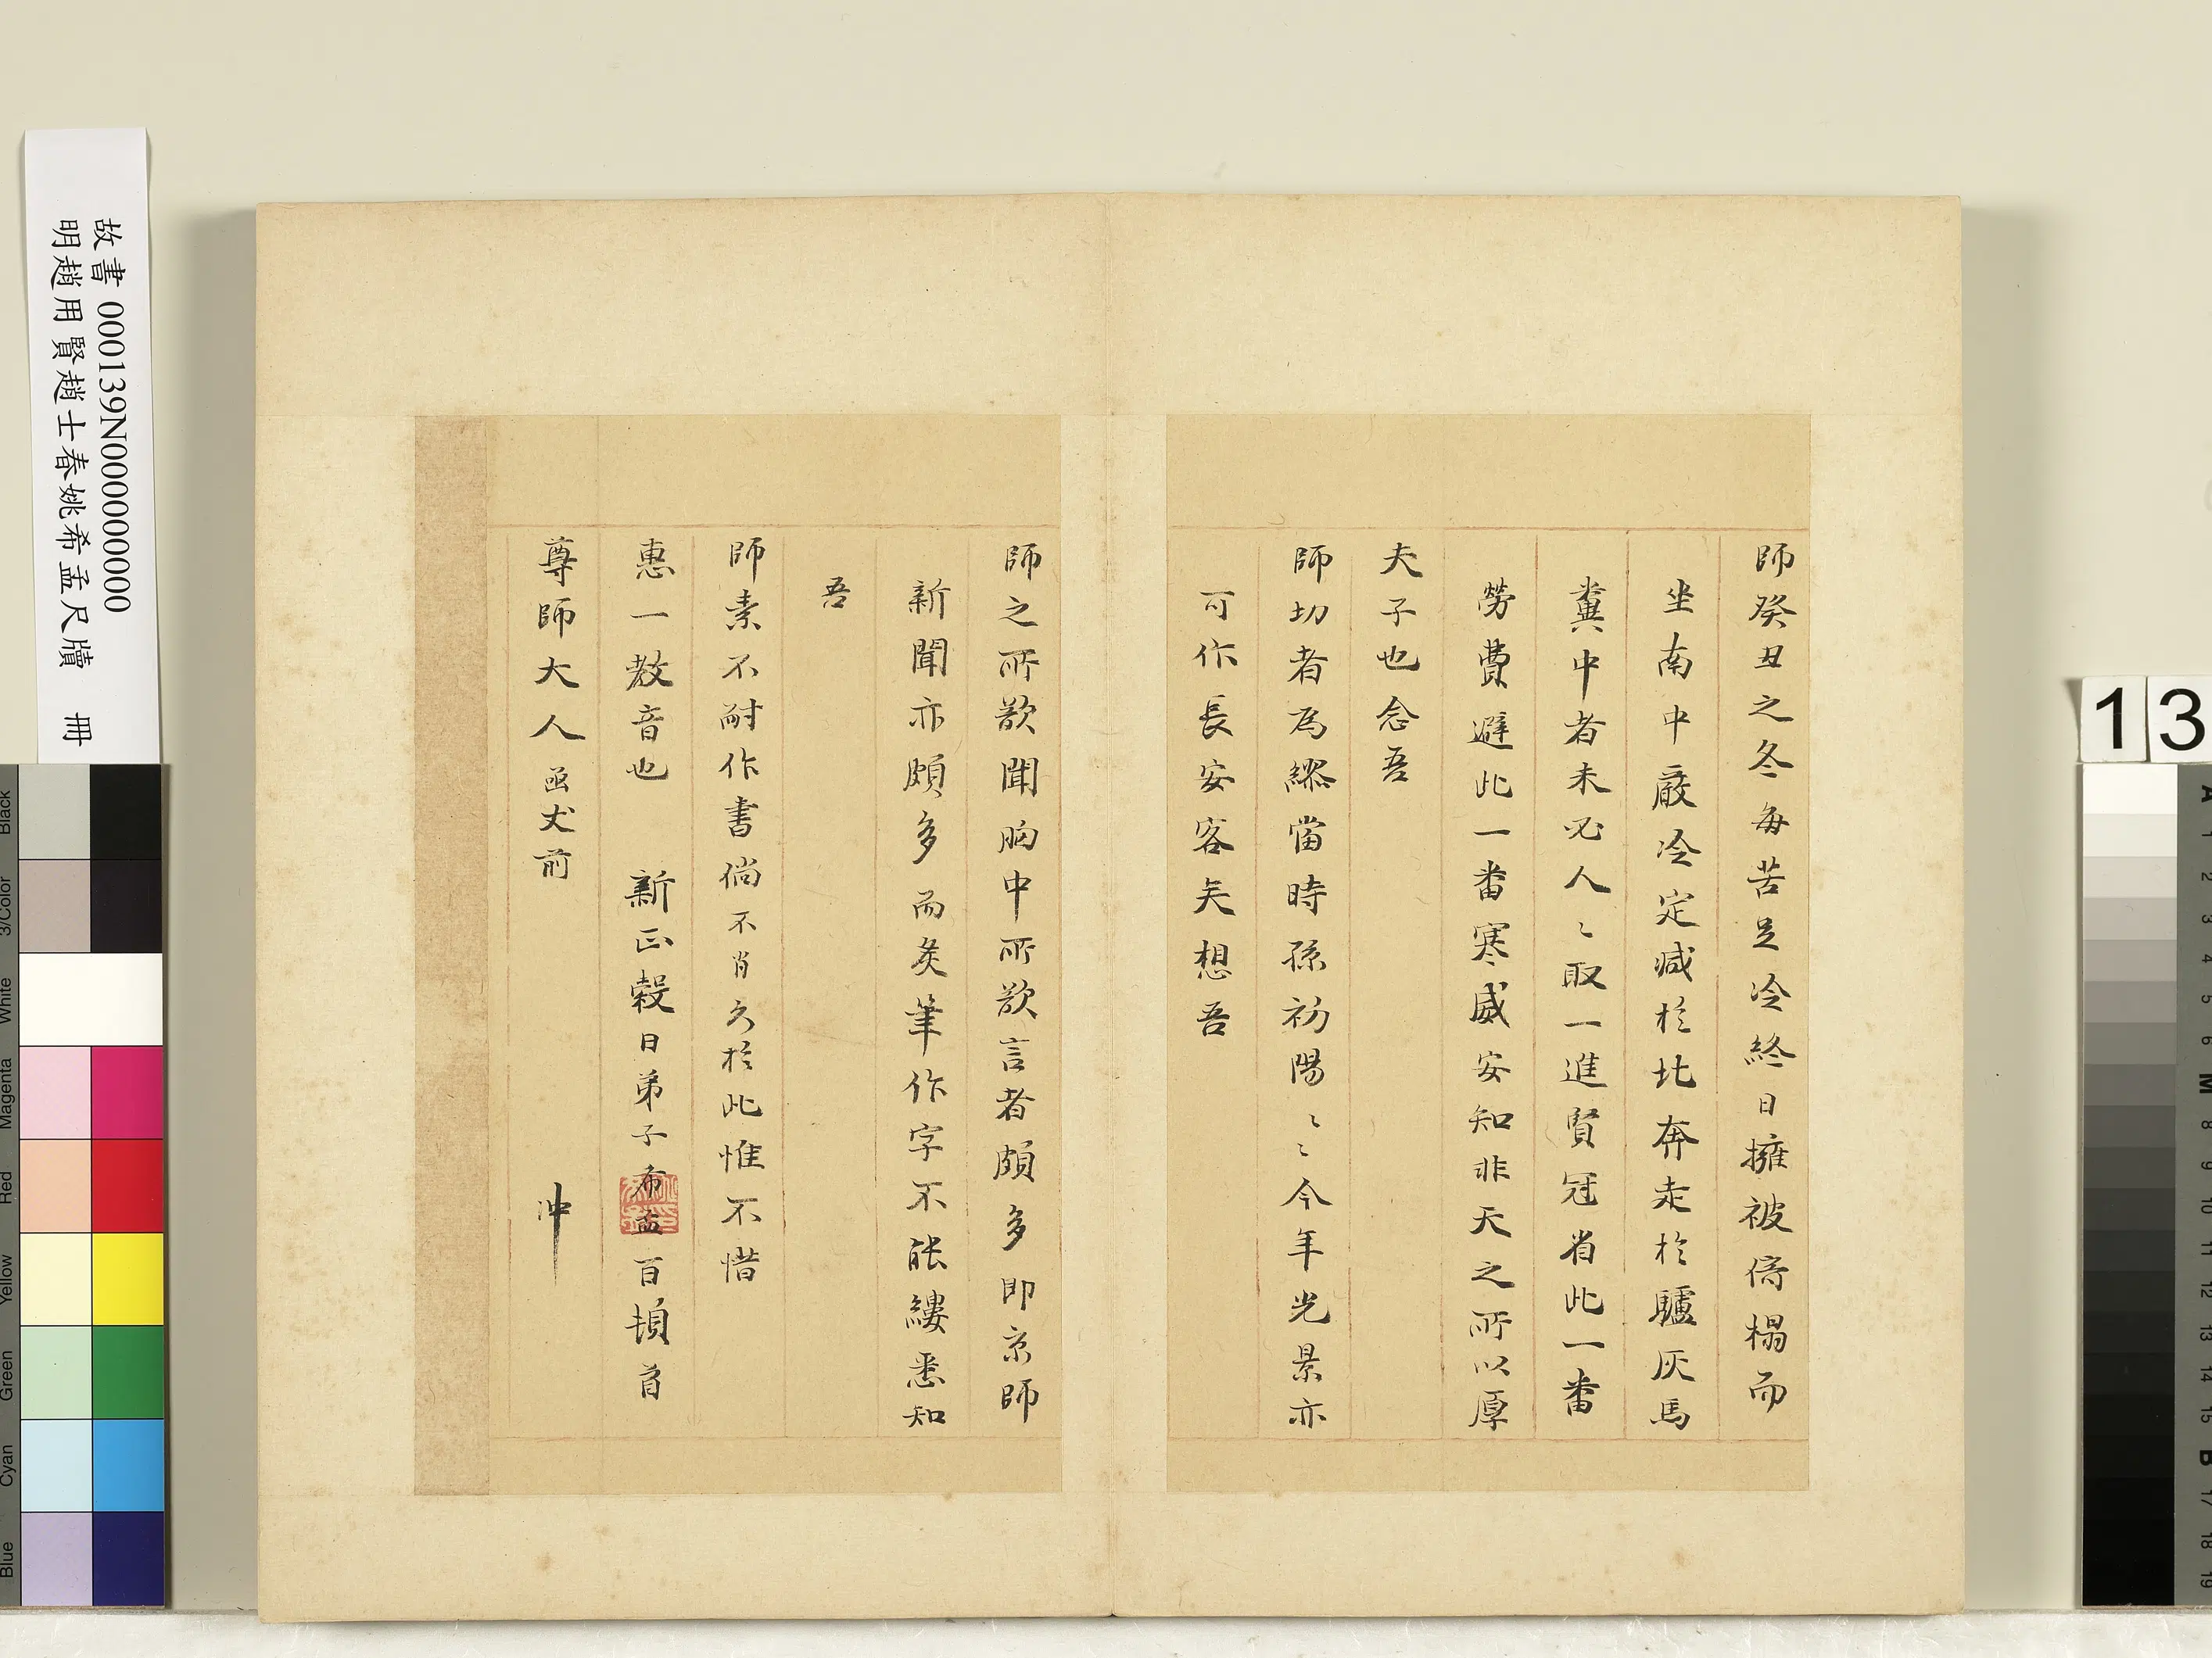 師癸丑之冬每苦足冷終日擁被倚榻而
坐南中嚴冷定减於北奔走於驢灰馬
糞中者未必人〻取一進賢冠省此一番
勞費避此一番寒威安知非天之所以厚
夫子也念吾
師切者為繆當時孫初陽〻〻今年光景亦
可作長安客矣想吾
師之所欲聞胸中所欲言者頗多即京師
新聞亦頗多而炙筆作字不能縷悉知
吾
師素不耐作書倘不肖久於此惟不惜
惠一教音也 新正穀日弟子希孟百頓首
尊師大人函丈前
冲
故書 000139N000000000
明趙用賢趙士春姚希孟尺牘 冊
13
Black
3/Color
White
Magenta
Red
Yellow
Green
Cyan
Blue
A
1
2
3
4
5
6
M
8
9
10
11
12
13
14
15
B
17
18
19